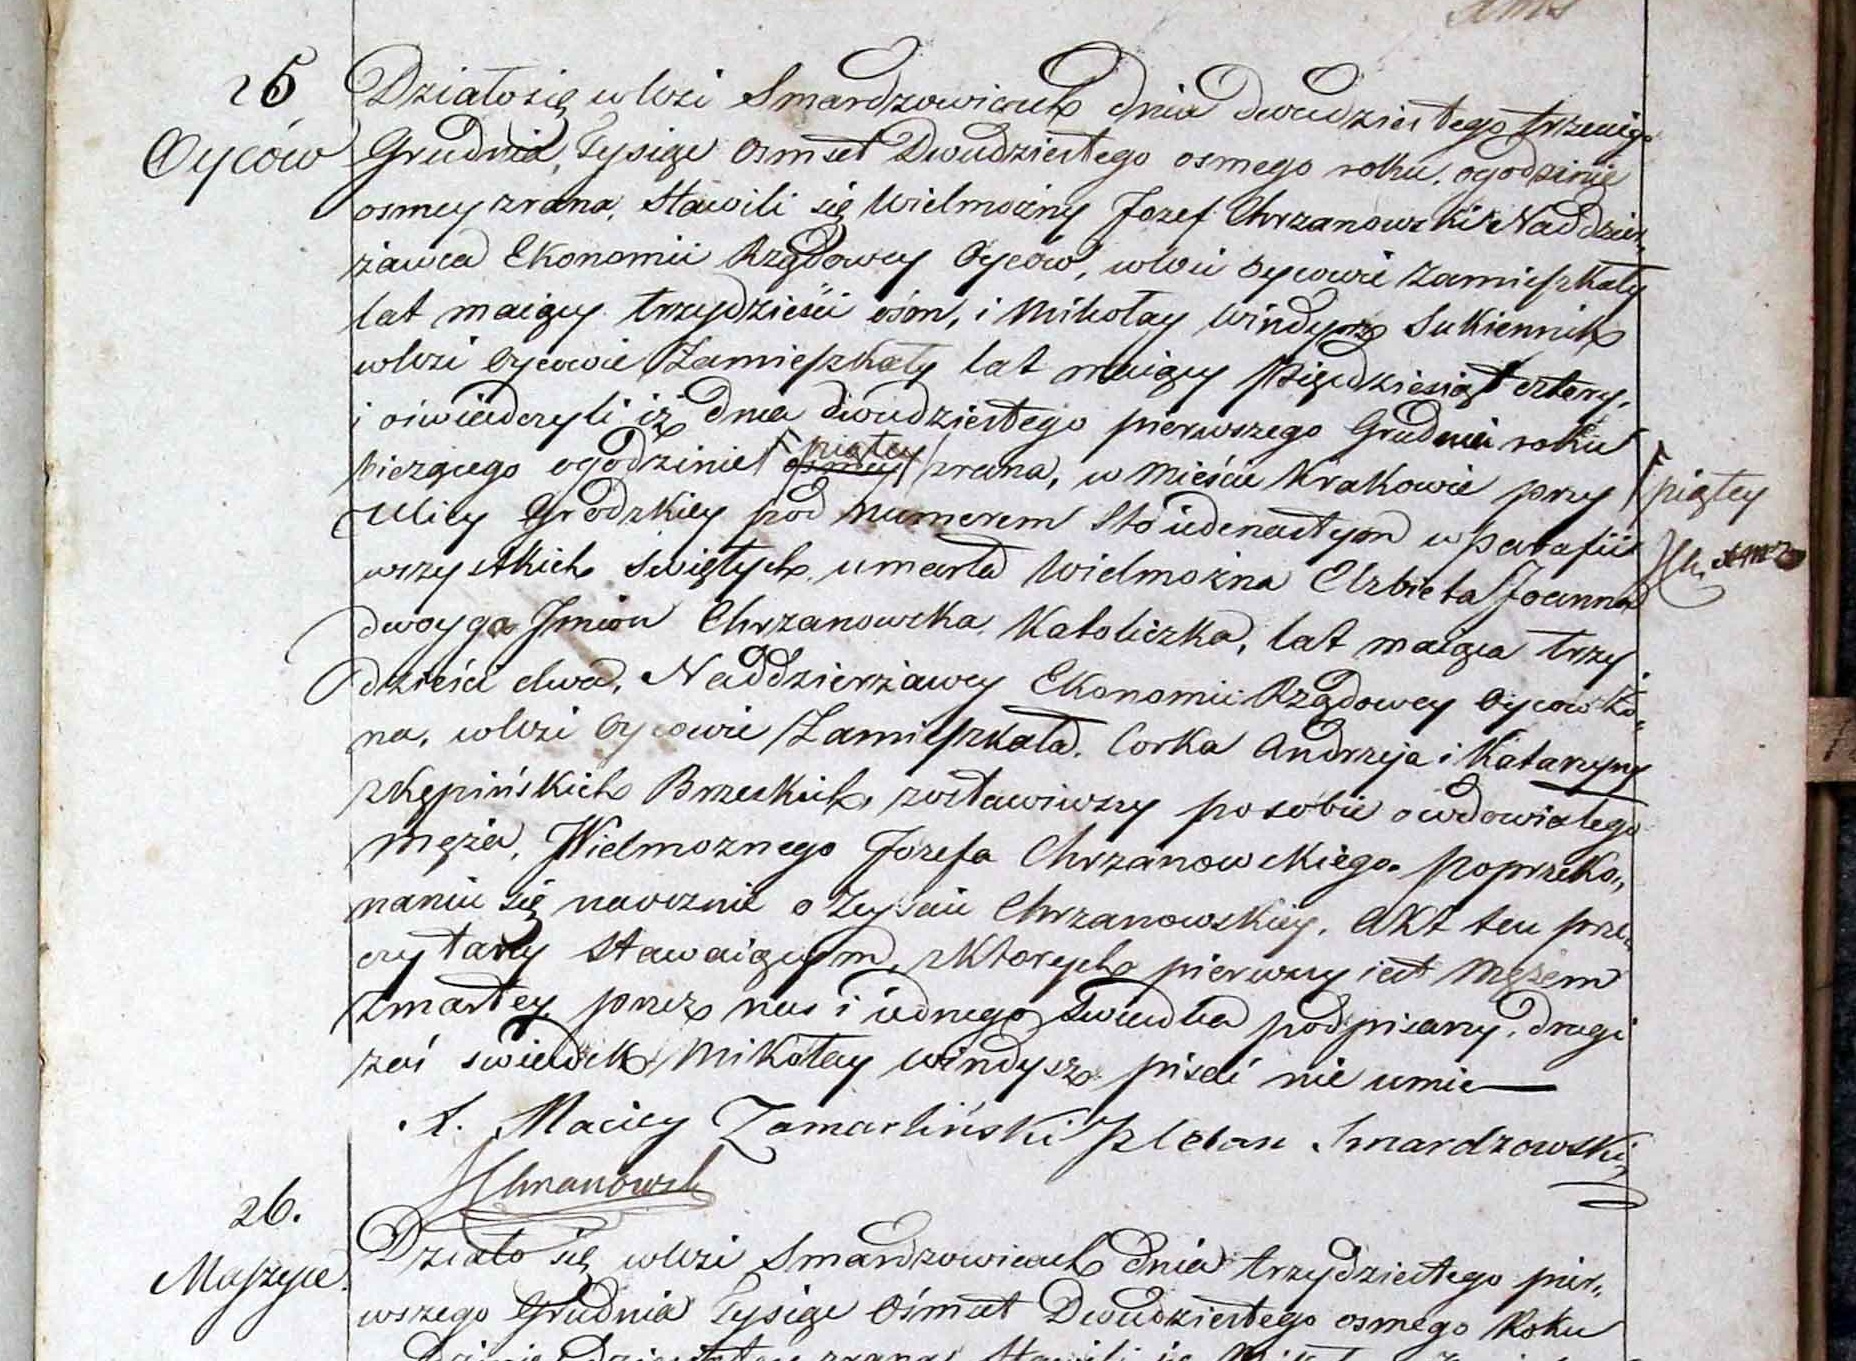 25
Oyców
Działo się w Wsi Smardzowicach dnia dwudziestego trzeciego
Grudnia, Tysiąc osmset Dwudziestego osmego roku, o godzinie
osmey zrana, stawili się Wielmożny Jozef Chrzanowski Naddzier„
żawca Ekonomii Rządowey Oyców, w Wsi Oycowie zamieszkały
lat maiący trzydzieści ośm, i Mikołay Windysz Sukiennik
w Wsi Oycowie Zamieszkały lat maiący pięćdziesiąt cztery,
i oświadczyli iż dnia dwudziestego pierwszego Grudnia roku
bieżącego o godzinie osmey piątey zrana, w Mieście Krakowie przy
piątey
Ulicy Grodzkiey pod Numerem sto iedenastym w Parafii
wszystkich Swiętych umarła Wielmożna Elzbieta Joanna
dwoyga Jmion Chrzanowska Katoliczka, lat maiąca trzy
dzieści dwa, Naddzierżawcy Ekonomii Rządowey Oyców Żo„
na, w Wsi Oycowie Zamieszkała. Corka Andrzeja i Katarzyny
z Kępińskich Brzeskich, zostawiwszy po sobie owdowiałego
Męża, Wielmoznego Jozefa Chrzanowskiego. Po przeko„
naniu się naocznie o Zeyściu Chrzanowskiey, Akt ten prze„
czytany stawaiącym, z Ktorych pierwszy iest Mężem
Zmarłey, przez nas i iednego Swiadka podpisany, drugi
zaś swiadek Mikołay Windysz pisać nie umie
X. Maciey Zamarliński Pleban Smardzowski
JChrzanowski
26.
Maszyce
Działo się w Wsi Smardzowicach dnia trzydziestego pier„
wszego Grudnia Tysiąc Ośmset Dwudziestego osmego Roku